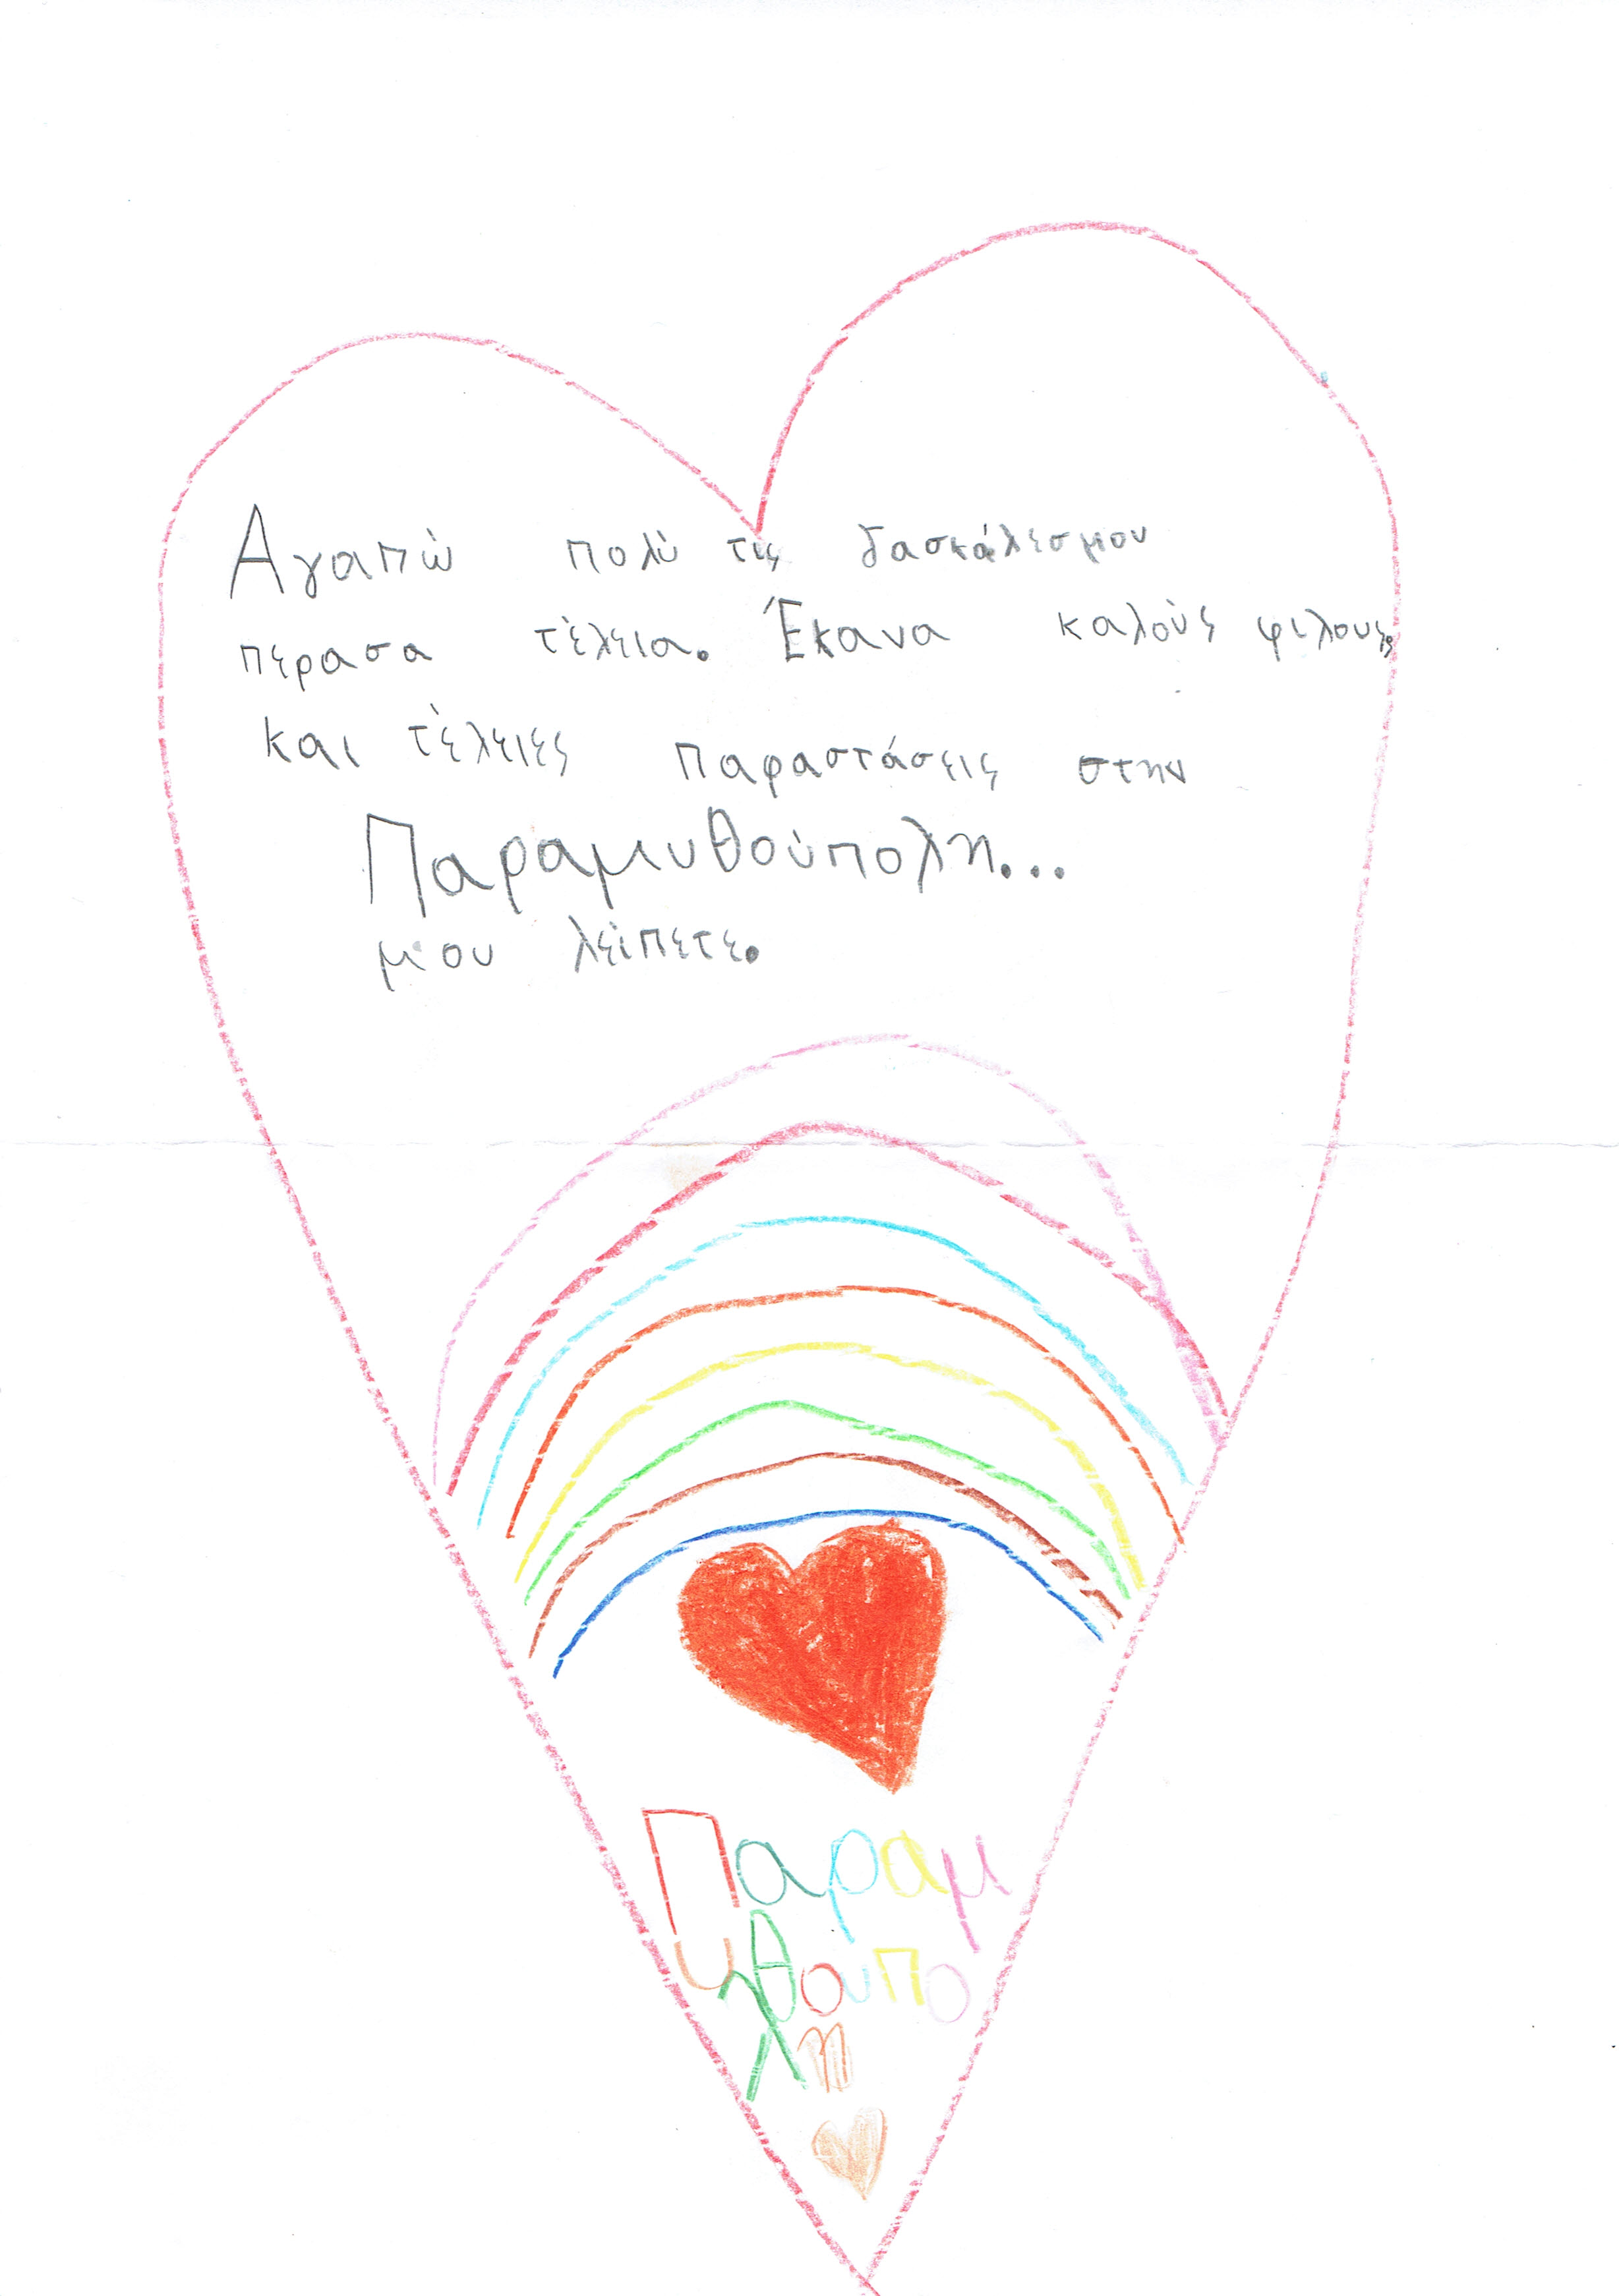 Αγαπώ πολύ τις δασκάλεσμου
περασα τέλεια. Έκανα καλούς φιλους
και τέλειες παραστάσεις στην
Παραμυθούπολη...
μου λείπετε.
Παραμ
υθουπο
λη